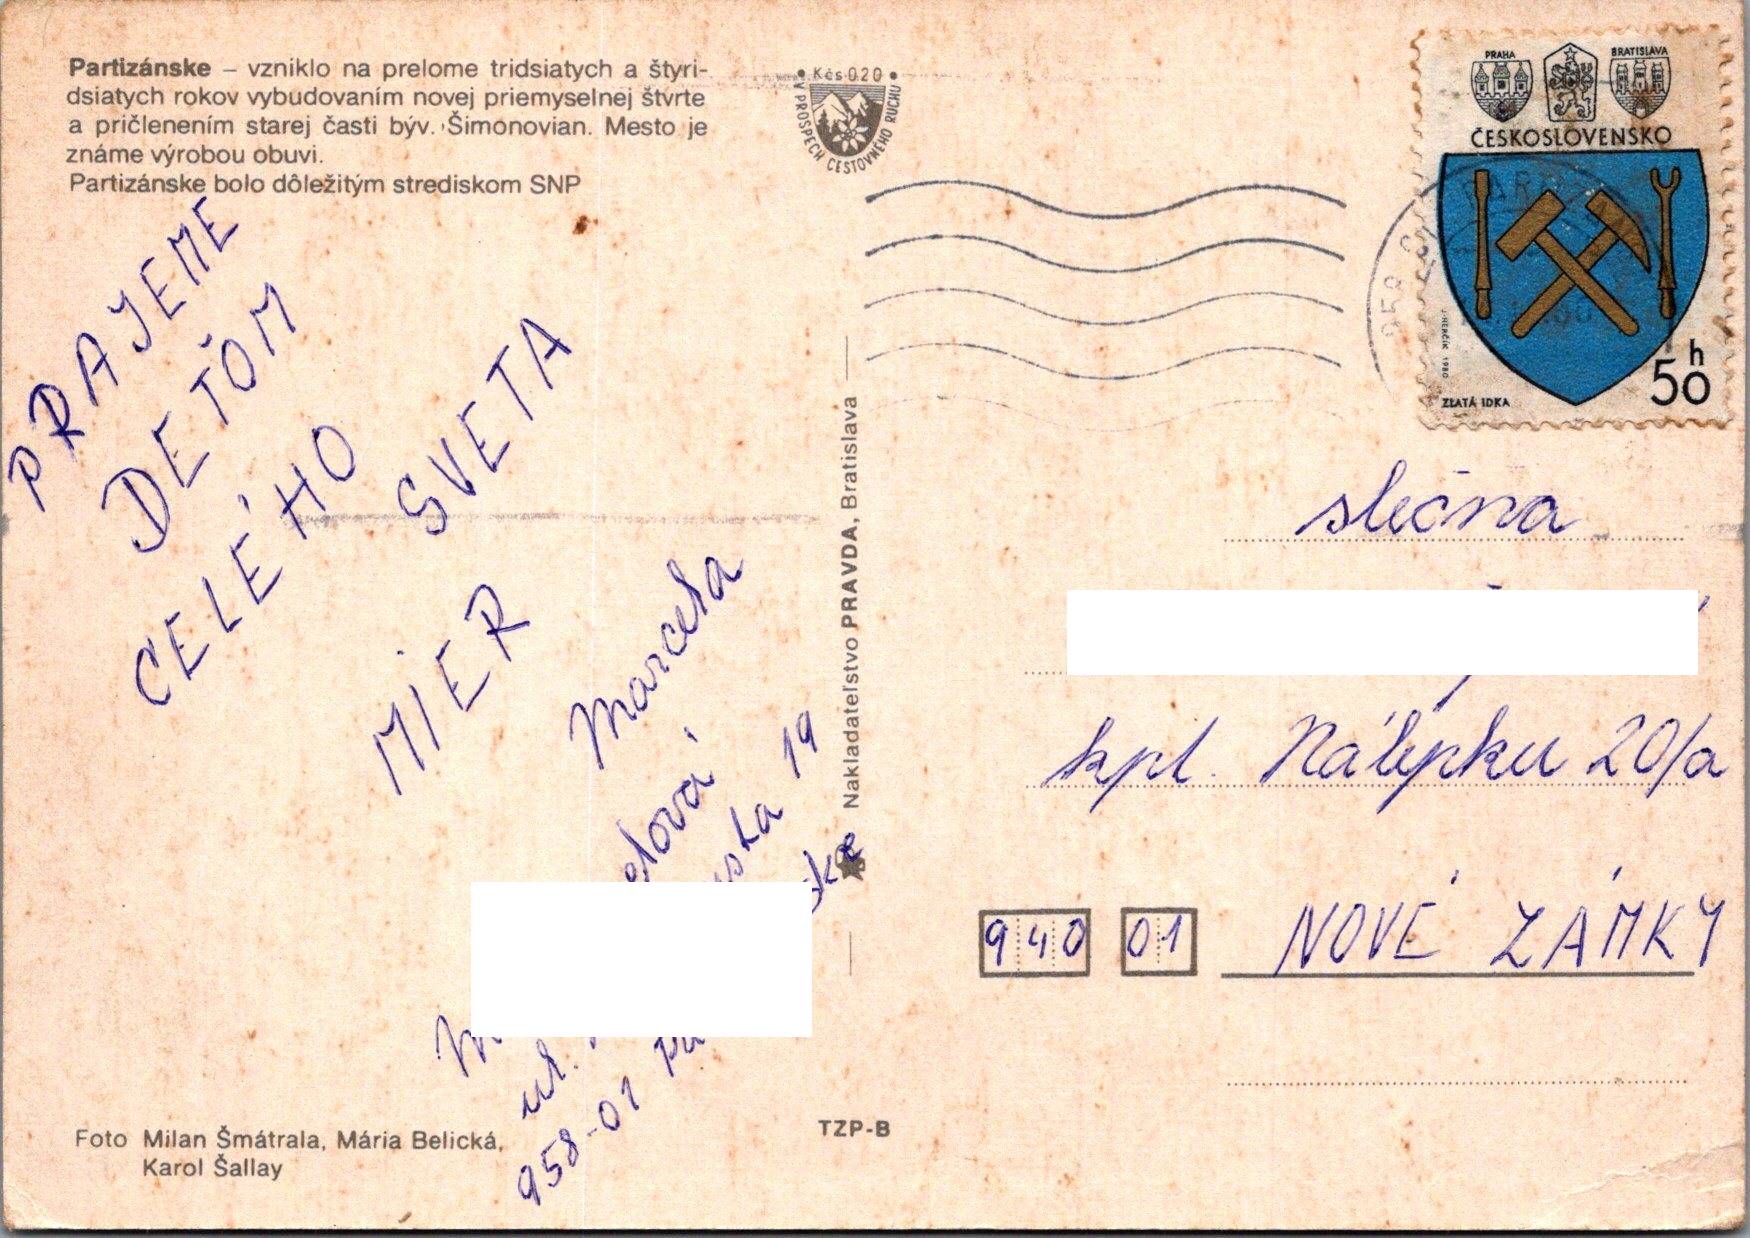 Partizánske – vzniklo na prelome tridsiatych a štyri-
dsiatych rokov vybudovaním novej priemyselnej štvrte
a pričlenením starej časti býv. Šimonovian. Mesto je
známe výrobou obuvi.
Partizánske bolo dôležitým strediskom SNP
PRAJEME
DEŤOM
CELÉHO
SVETA
MIER
Marcela
ul.
19
958-01
Foto Milan Šmátrala, Mária Belická,
Karol Šallay
Kčs 0,20
V PROSPECH CESTOVNÉHO RUCHU
Nakladateľstvo PRAVDA, Bratislava
TZP-B
PRAHA
BRATISLAVA
ČESKOSLOVENSKO
J. HERČÍK 1980
ZLATÁ IDKA
50 h
958
slečna
kpt. Nálepku 20/a
940 01 NOVÉ ZÁMKY